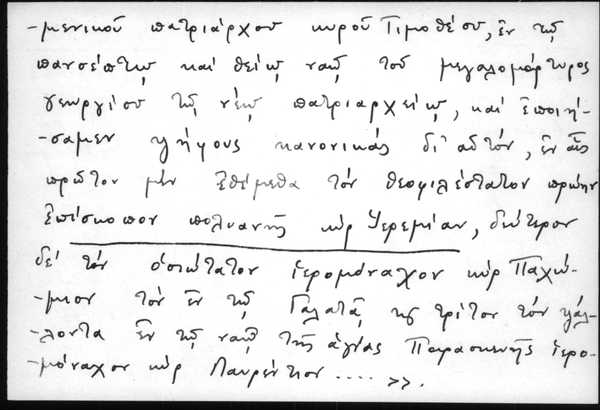 -μενικοῦ πατριάρχου κυροῦ Τιμοθέου, ἐν τῷ
πανσέπτῳ καὶ θείῳ ναῷ τοῦ μεγαλομάρτυρος
γεωργίου τῷ νέῳ πατριαρχείῳ, καὶ ἐποιή-
-σαμεν ψήφους κανονικάς δι' αὐτόν, ἐν αἷς
πρῶτον μέν ἐθέμεθα τὸν θεοφιλέστατον πρώην
ἐπίσκοπον πολυανῆς κύρ Ἱερεμίαν, δεύτερον
δέ τόν ὁσιώτατον ἱερομόναχον κύρ Παχώ-
-μιον τὸν ἐν τῷ Γαλατᾷ, κς τρίτον τόν ψάλ-
-λοντα ἐν τῷ ναῷ τῆς ἁγίας Παρασκευῆς ἱερο-
-μόναχον κύρ Λαυρέντιον .... >>.